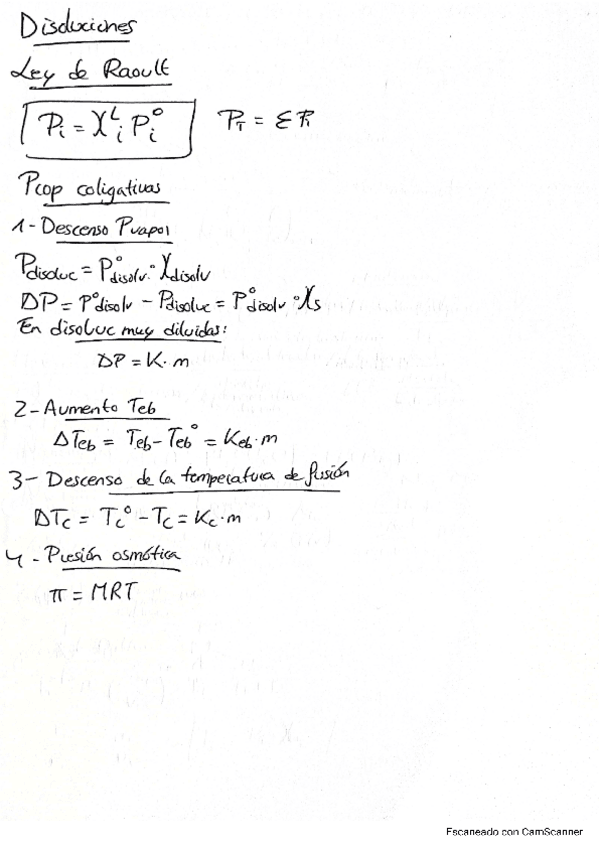 Disoluciones
Ley de Raoult
Pᵢ = Xᴸᵢ Pᵢ° P_T = Σ Pᵢ
Prop coligativas
1- Descenso Pvapor
Pdisoluc = P°disolv · Xdisolv
ΔP = P°disolv - Pdisoluc = P°disolv · Xs
En disoluc muy diluidas:
ΔP = K · m
2- Aumento Teb
ΔTeb = Teb - Teb° = Keb · m
3- Descenso de la temperatura de fusión
ΔTc = Tc° - Tc = Kc · m
4- Presión osmótica
π = MRT
Escaneado con CamScanner